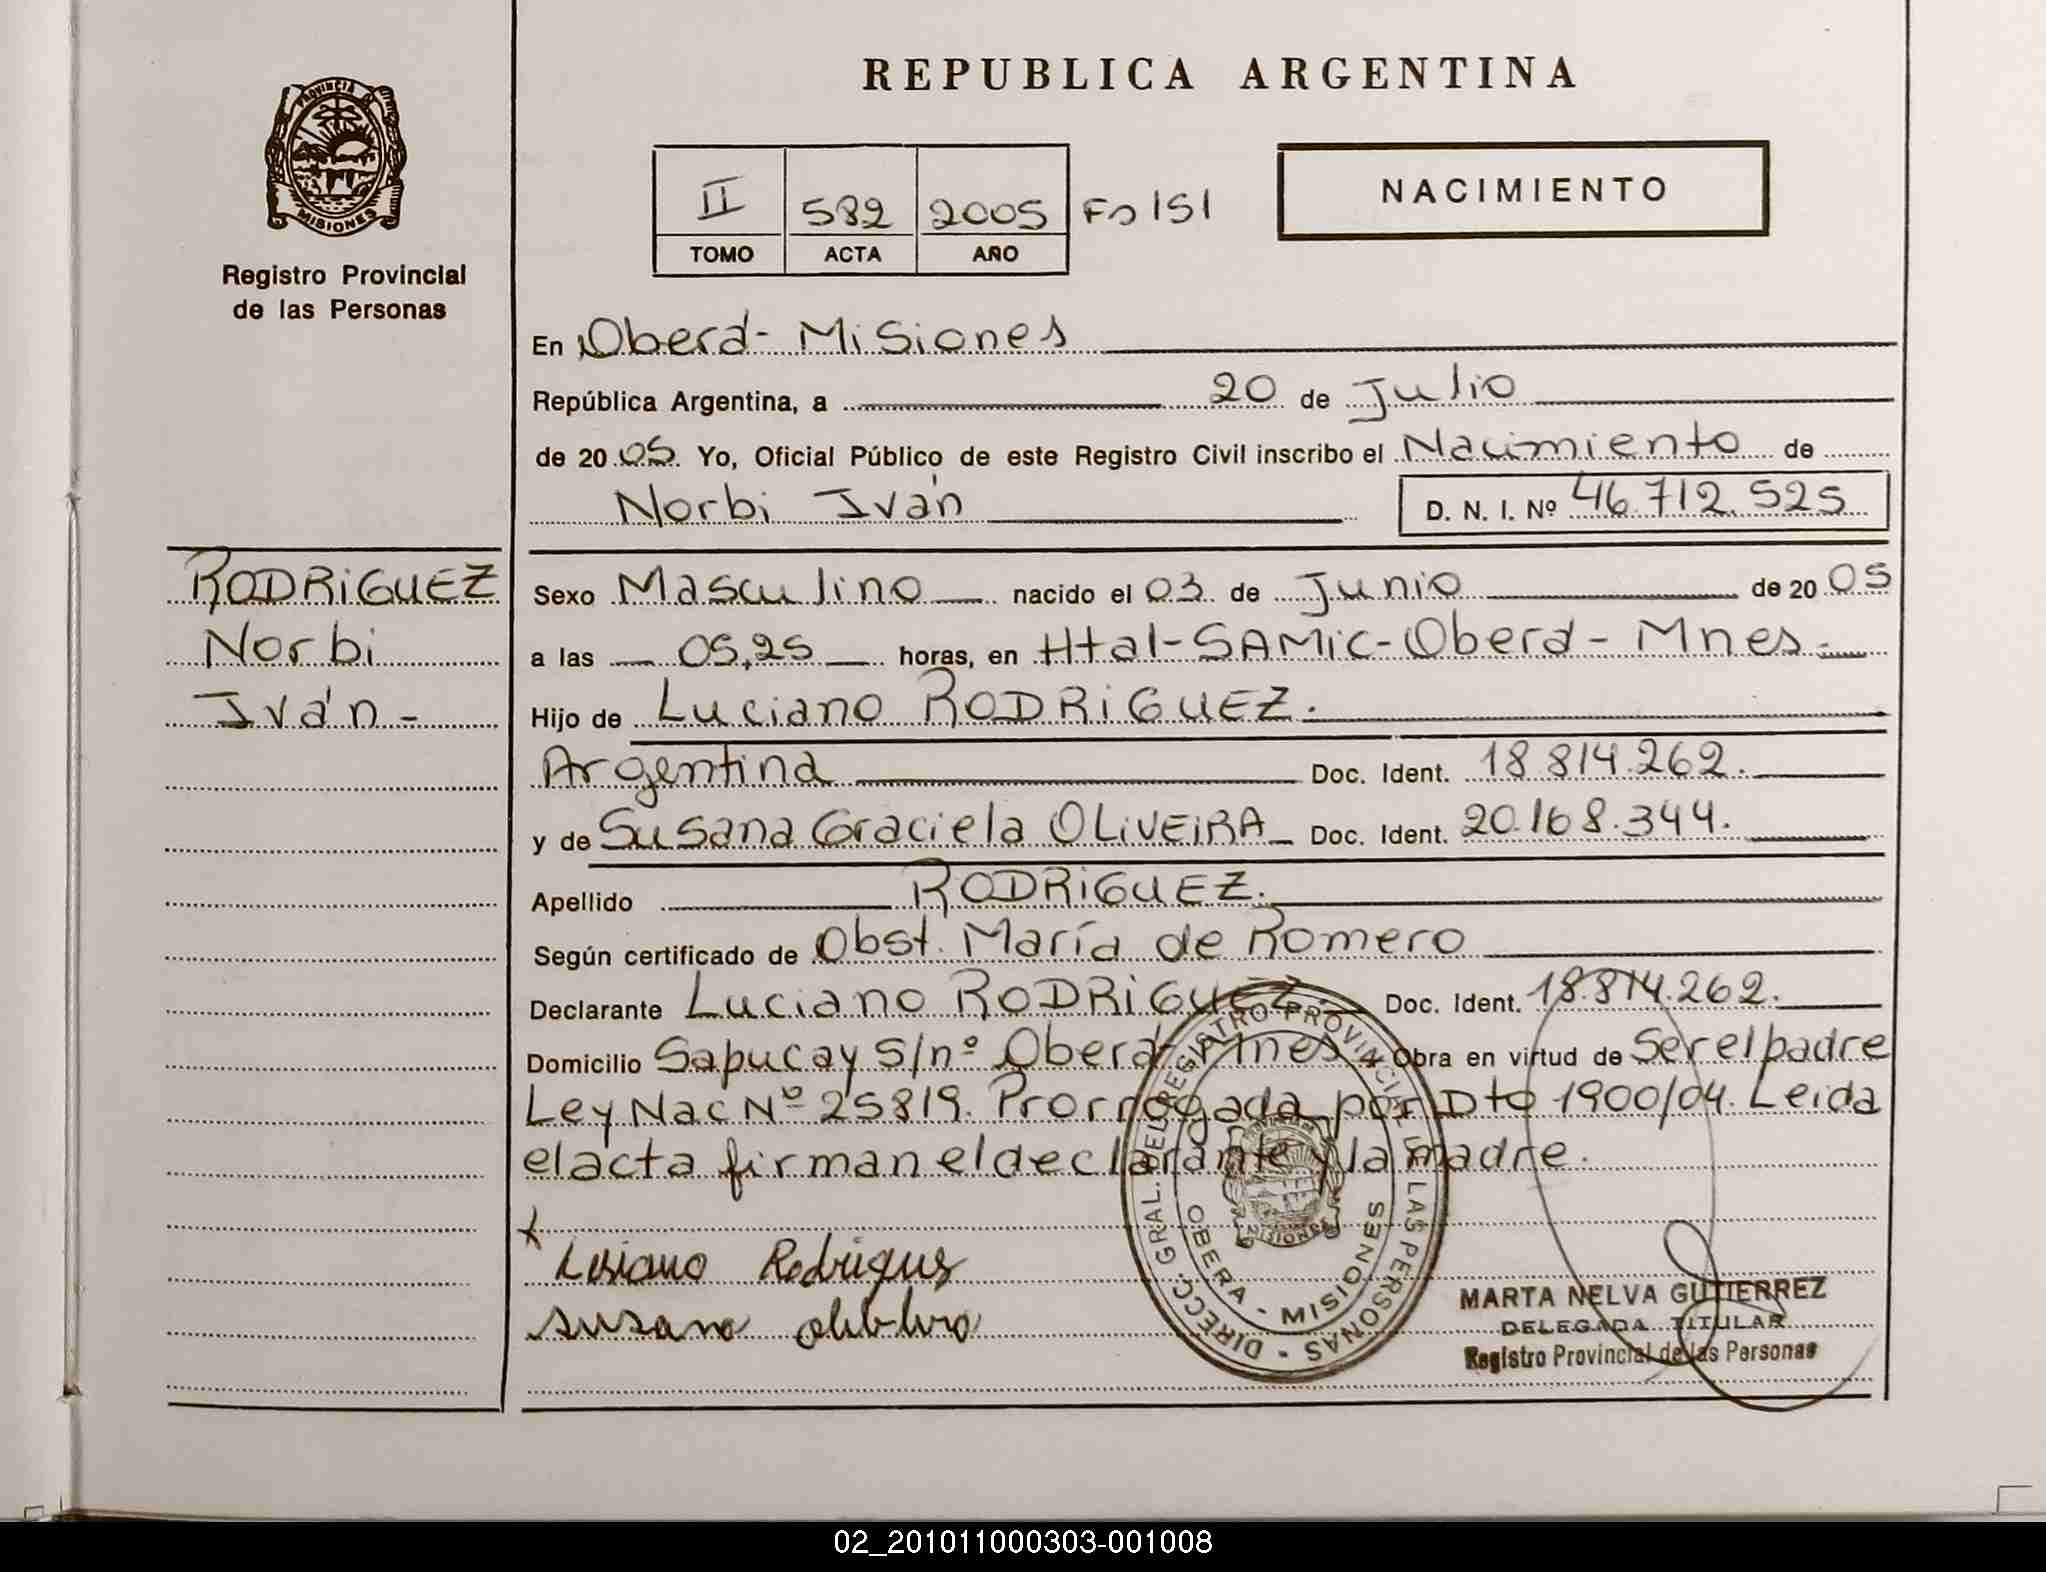 REPUBLICA ARGENTINA
PROVINCIA DE MISIONES
Registro Provincial
de las Personas
II 582 2005 Fo 151
TOMO ACTA AÑO
NACIMIENTO
En Oberá - Misiones
República Argentina, a 20 de Julio
de 20 05. Yo, Oficial Público de este Registro Civil inscribo el Nacimiento de
Norbi Iván D. N. I. Nº 46.712.525
RODRIGUEZ
Norbi
Iván -
Sexo Masculino nacido el 03 de Junio de 20 05
a las 05,25 horas, en Htal-SAMIC-Oberá - Mnes.
Hijo de Luciano RODRIGUEZ.
Argentina Doc. Ident. 18.814.262.
y de Susana Graciela OLIVEIRA Doc. Ident. 20.168.344.
Apellido RODRIGUEZ.
Según certificado de Obst. María de Romero
Declarante Luciano RODRIGUEZ. Doc. Ident. 18.814.262.
Domicilio Sapucay S/nº Oberá - Mnes Obra en virtud de Ser el padre
Ley Nac Nº 25819. Prorrogada por Dto 1900/04. Leida
el acta firman el declarante y la madre.
DIRECC. GRAL. DEL REGISTRO PROVINCIAL DE LAS PERSONAS
OBERA - MISIONES
MARTA NELVA GUTIERREZ
DELEGADA TITULAR
Registro Provincial de las Personas
02_201011000303-001008